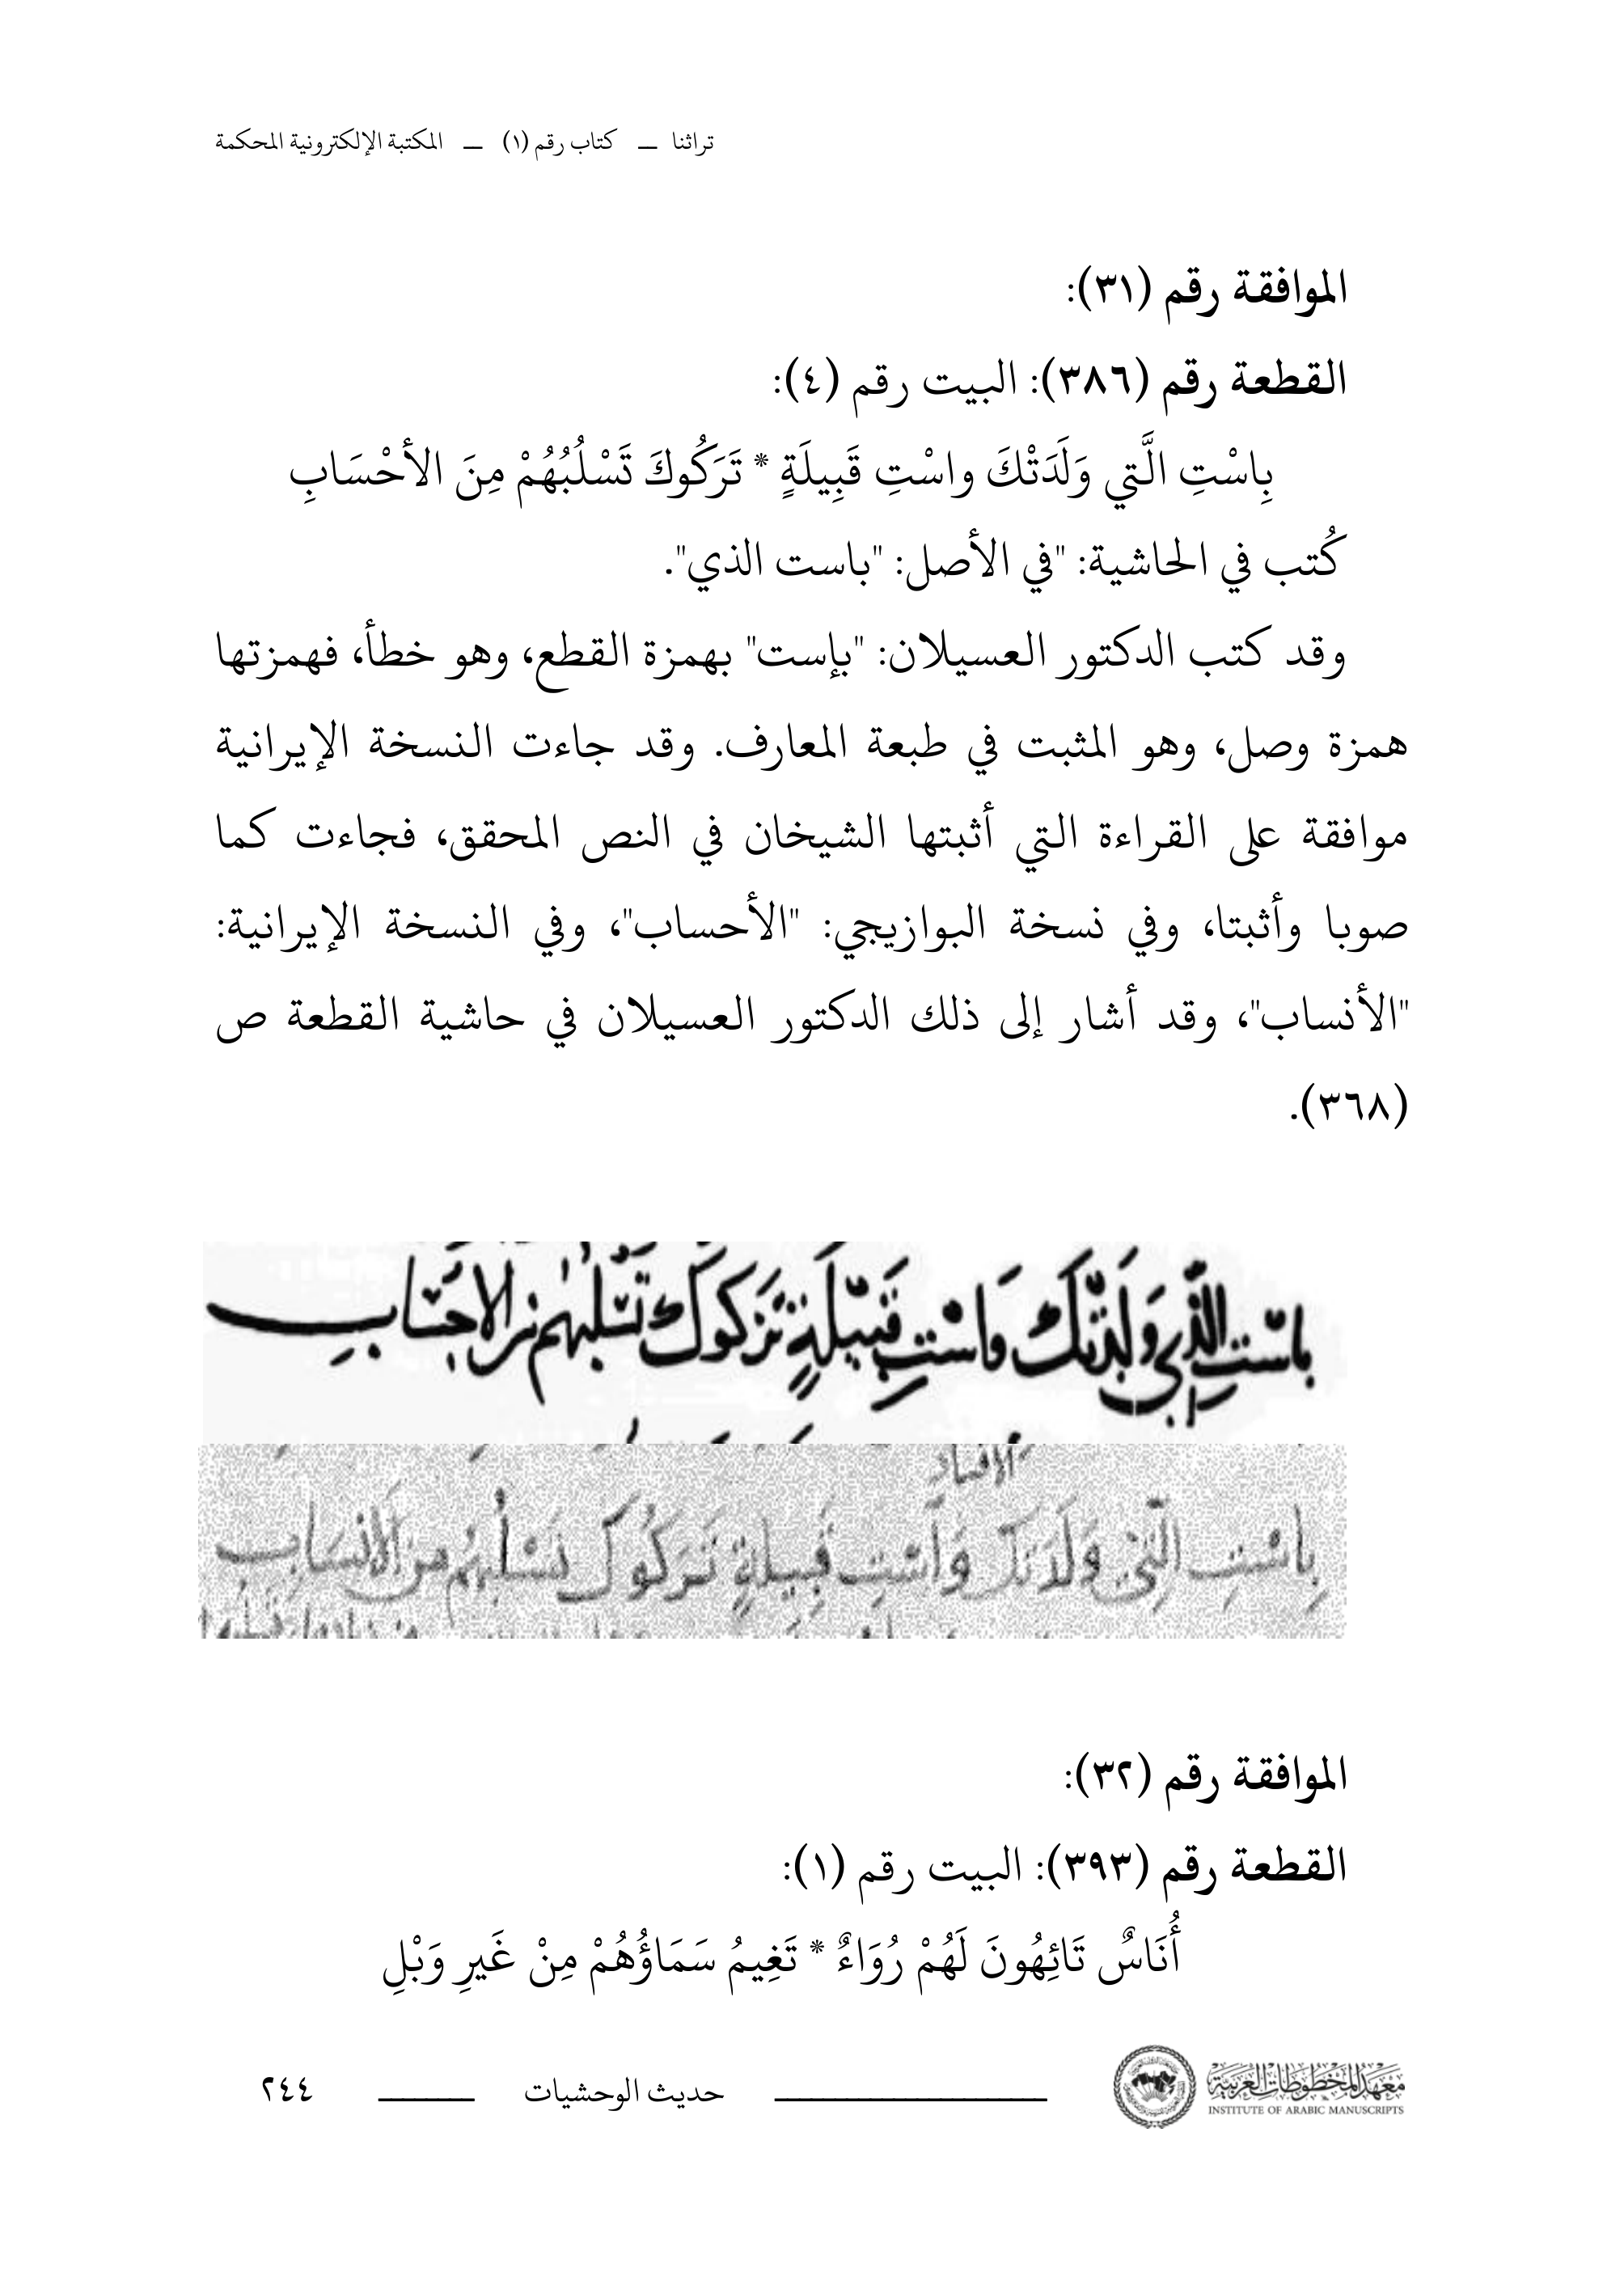 تراثنا — كتاب رقم (١) — المكتبة الإلكترونية المحكمة
الموافقة رقم (٣١):
القطعة رقم (٣٨٦): البيت رقم (٤):
بِاسْتِ الَّتِي وَلَدَتْكَ واسْتِ قَبِيلَةٍ * تَرَكُوكَ تَسْلُبُهُمْ مِنَ الأحْسَابِ
كُتب في الحاشية: "في الأصل: "باست الذي".
وقد كتب الدكتور العسيلان: "بإست" بهمزة القطع، وهو خطأ، فهمزتها
همزة وصل، وهو المثبت في طبعة المعارف. وقد جاءت النسخة الإيرانية
موافقة على القراءة التي أثبتها الشيخان في النص المحقق، فجاءت كما
صوبا وأثبتا، وفي نسخة البوازيجي: "الأحساب"، وفي النسخة الإيرانية:
"الأنساب"، وقد أشار إلى ذلك الدكتور العسيلان في حاشية القطعة ص
(٣٦٨).
باست الذي ولدتك واست قبيلةٍ تركوك تسلبهم من الاحساب
بِاسْتِ الَّتي وَلَدَتكَ وَاسْتِ قَبِيلةٍ تَرَكُوكَ تَسْلُبهُم من الانسَابِ
الموافقة رقم (٣٢):
القطعة رقم (٣٩٣): البيت رقم (١):
أُنَاسٌ تَائِهُونَ لَهُمْ رُوَاءٌ * تَغِيمُ سَمَاؤُهُمْ مِنْ غَيرِ وَبْلِ
معهد المخطوطات العربية
INSTITUTE OF ARABIC MANUSCRIPTS
حديث الوحشيات
٢٤٤